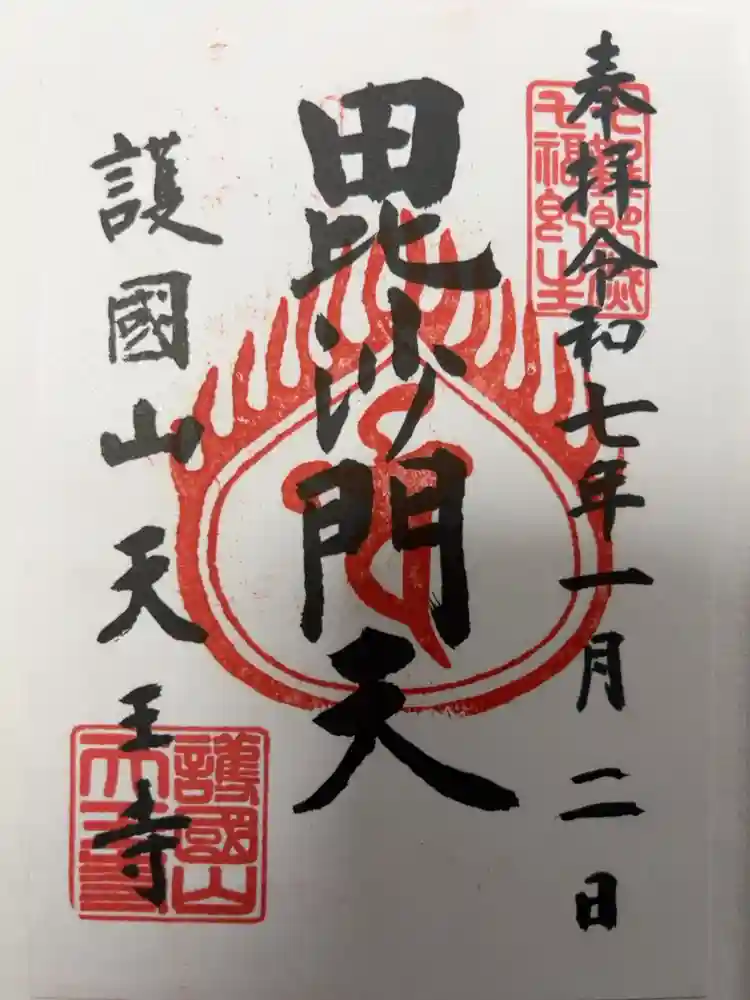 奉拝 令和七年一月二日
毘沙門天
護國山 天王寺
七難即滅
七福即生
護國山
天王寺